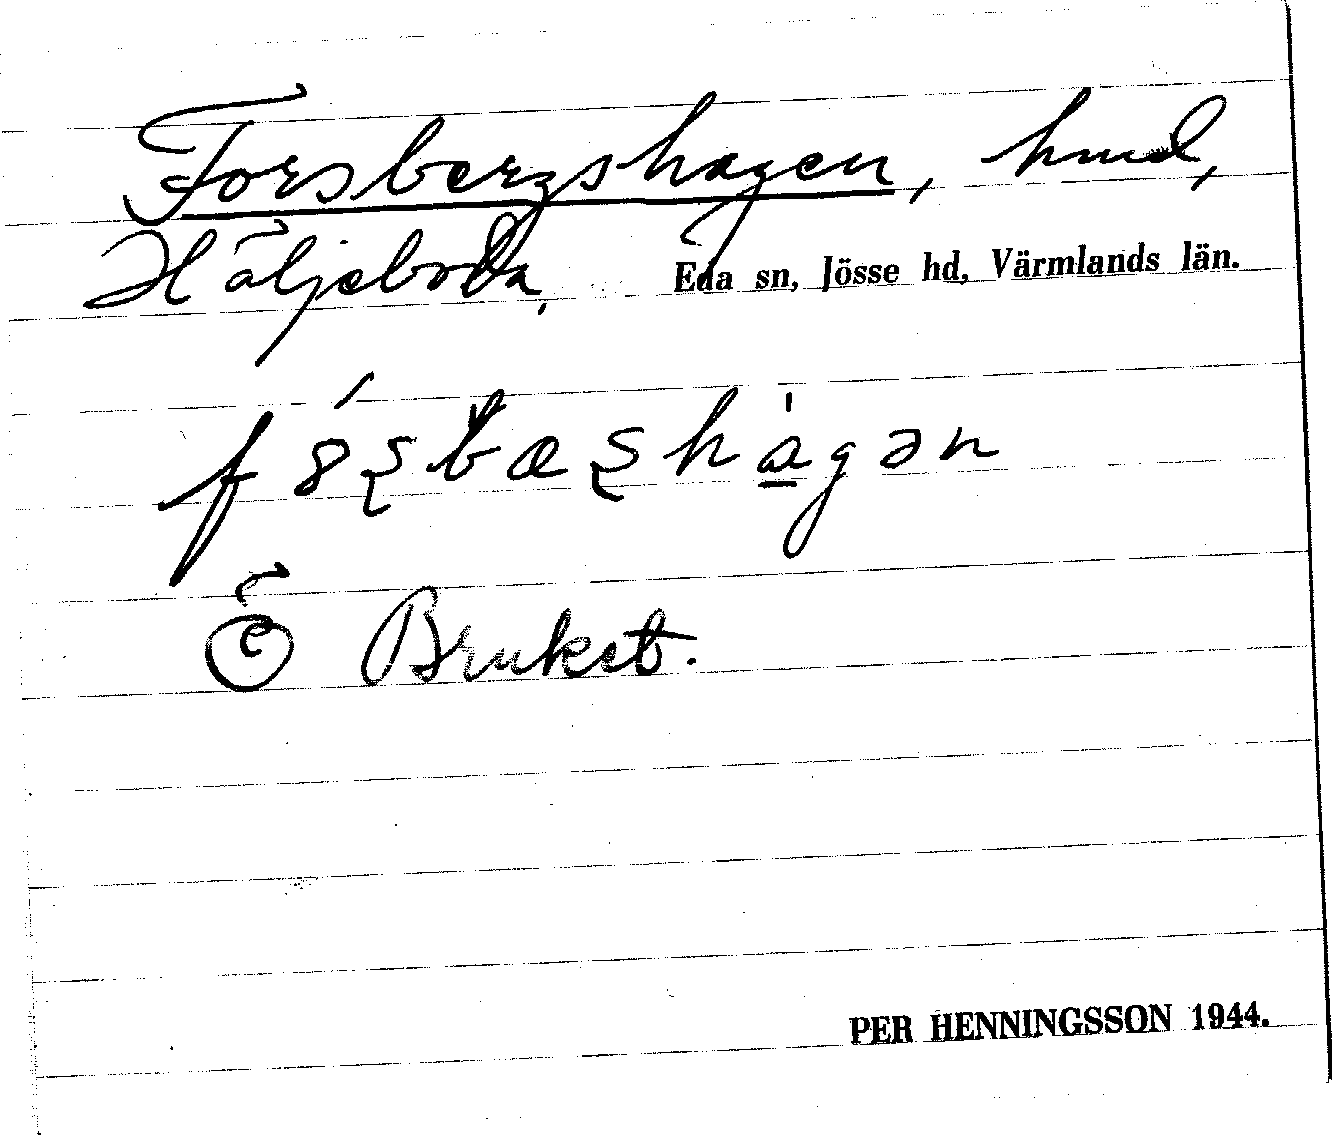 Forsbergshagen, hmd,
Häljeboda, Eda sn, Jösse hd, Värmlands län.
Ö Bruket.
PER HENNINGSSON 1944.